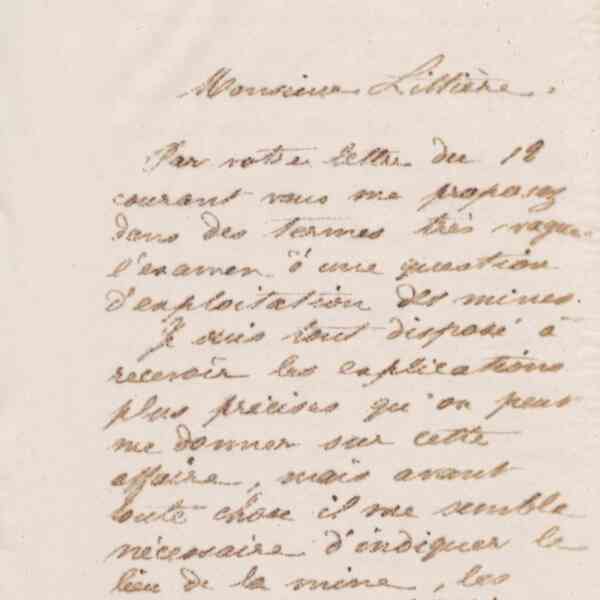 Monsieur Littière.
Par votre lettre du 18
courant vous me proposez
dans des termes très vague
l'examen d'une question
d'exploitation des mines.
Je suis tout disposé à
recevoir les explications
plus précises qu'on peut
me donner sur cette
affaire, mais avant
toute chose il me semble
nécessaire d'indiquer le
lieu de la mine, les